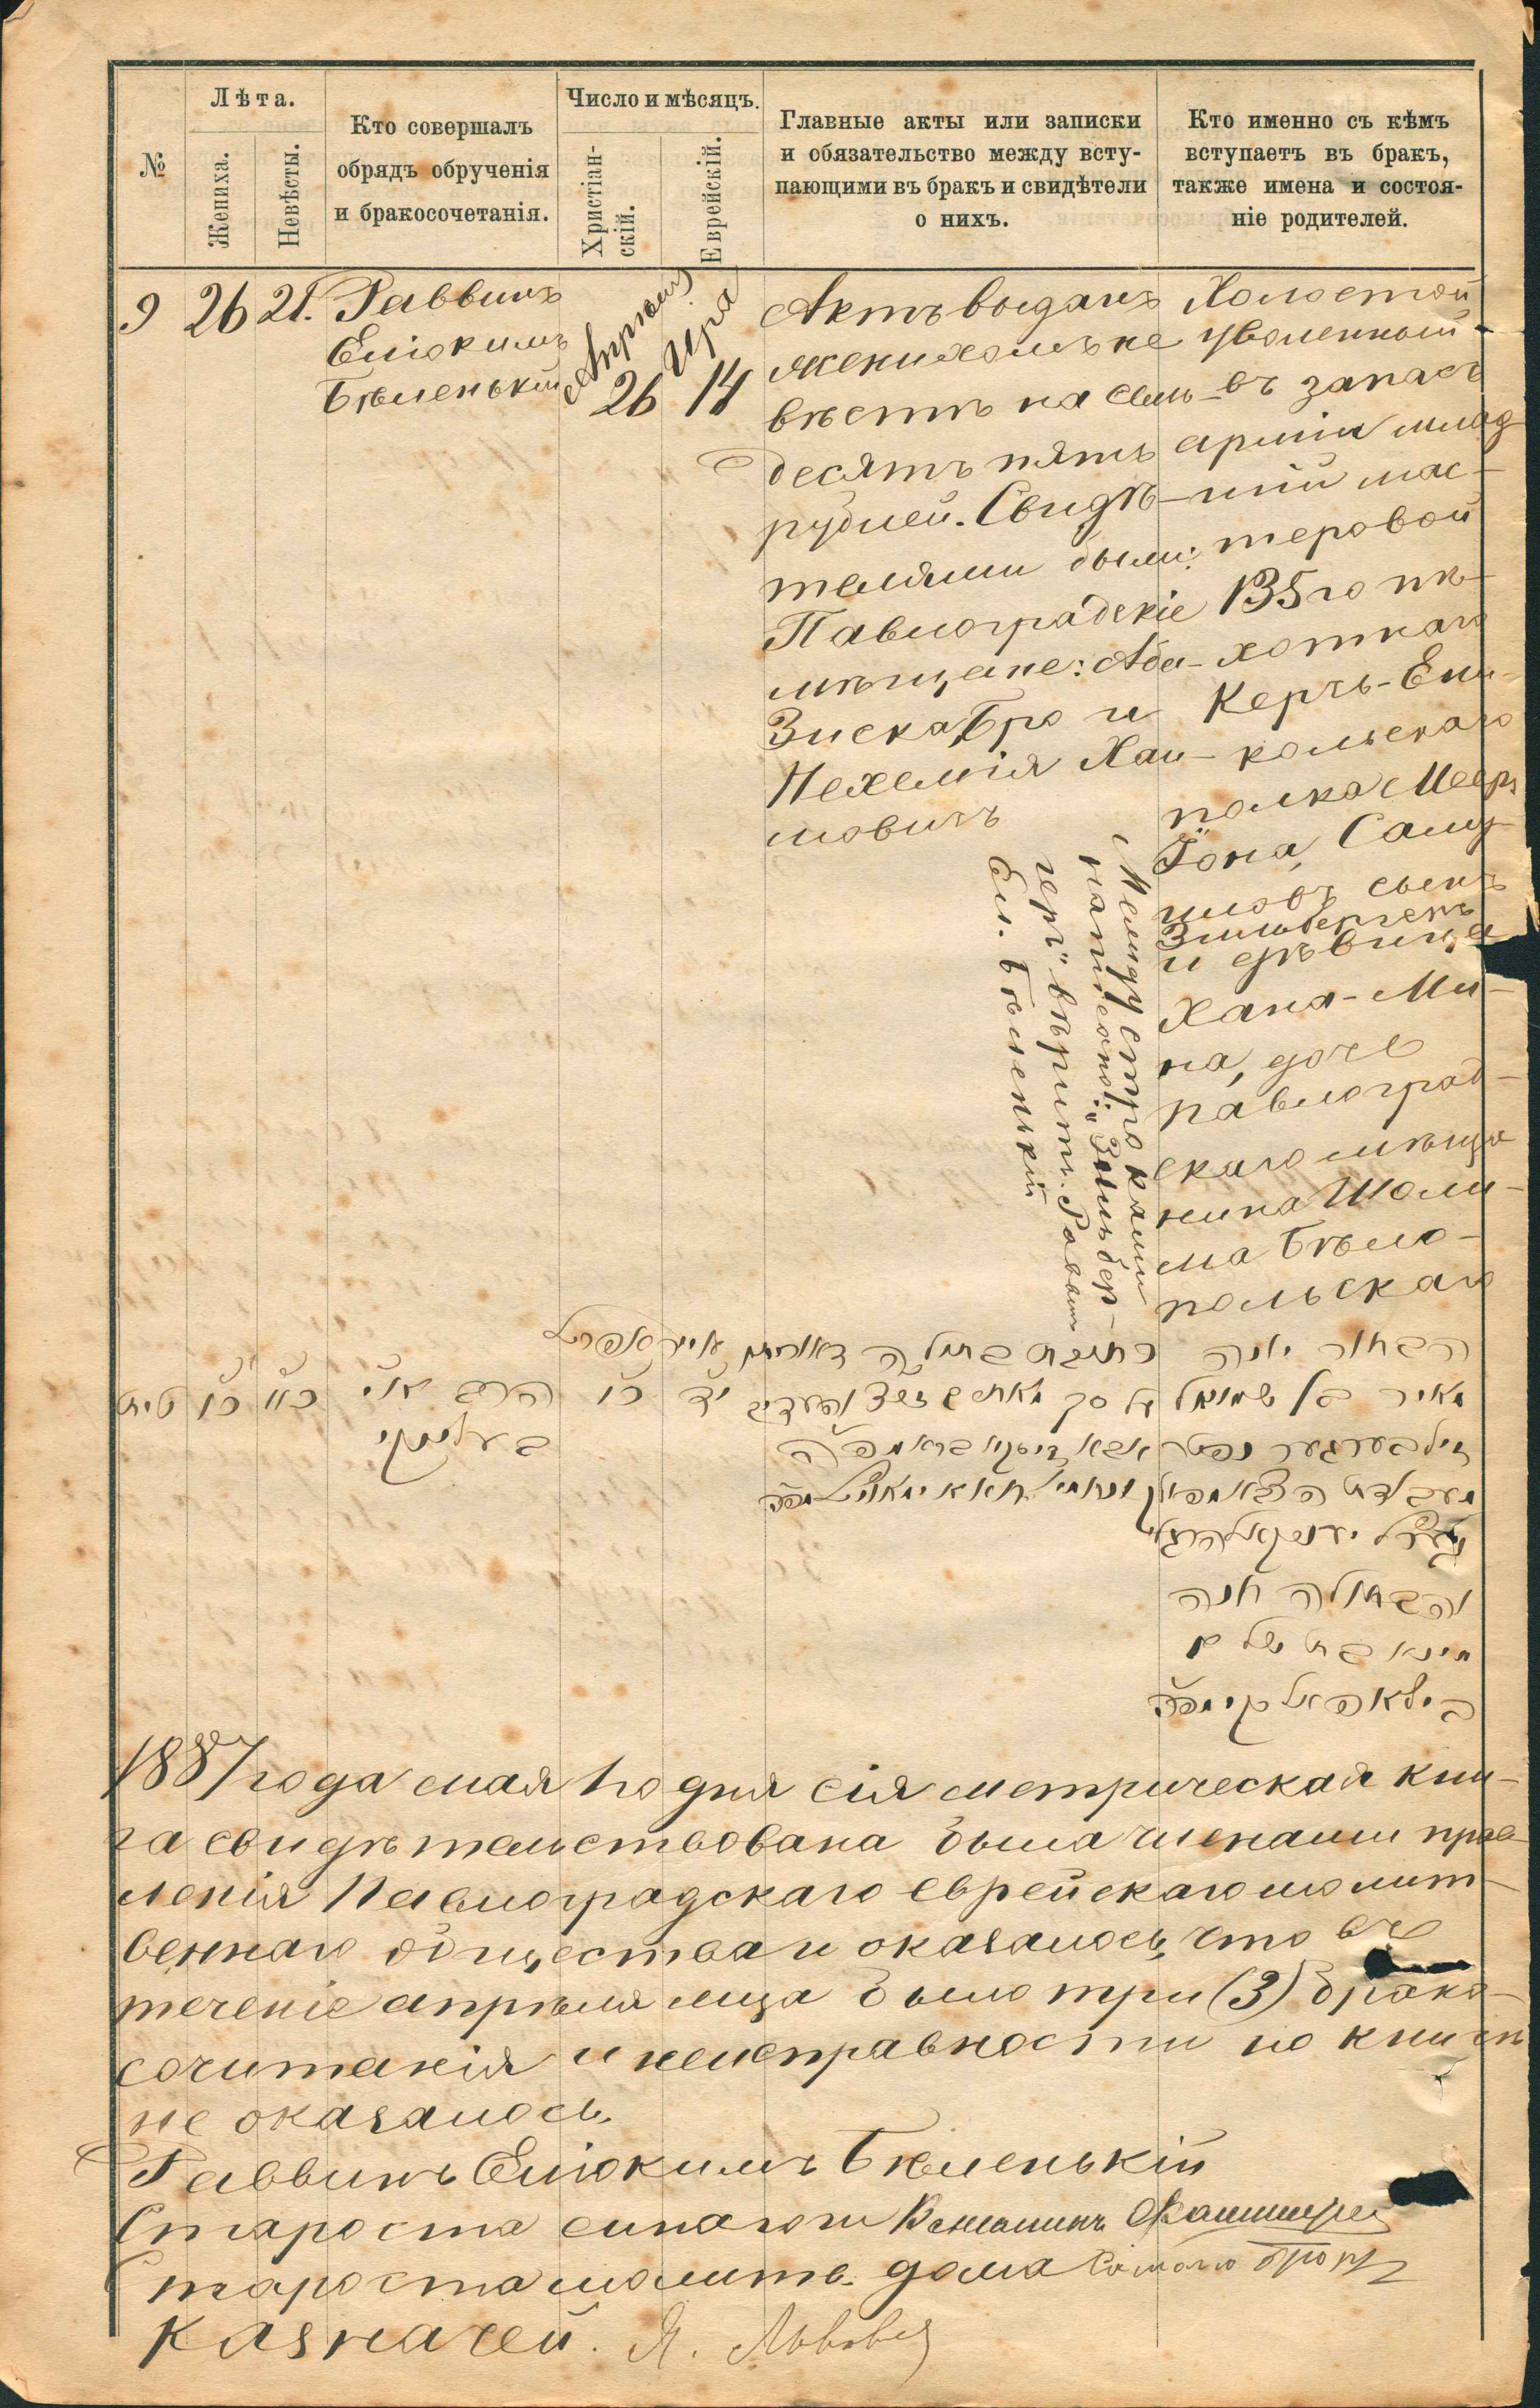 №
Лѣта.
Жениха.
Невѣсты.
Кто совершалъ
обрядъ обрученія
и бракосочетанія.
Число и мѣсяцъ.
Христіан-
скій.
Еврейскій.
Главные акты или записки
и обязательство между всту-
пающими въ бракъ и свидѣтели
о нихъ.
Кто именно съ кѣмъ
вступаетъ въ бракъ,
также имена и состоя-
ніе родителей.
9
26
21.
Раввинъ
Еліокимъ
Бѣленькій
Апрѣля
26
Ііра
14
Актъ выданъ
женихомъ не
вѣстѣ на семь-
десятъ пять
рублей. Свидѣ-
телями были:
Павлоградскіе
мѣщане: Аба-
Зиска Бро и
Нехемія Хаи-
мовичъ
Холостой
уволенный
въ запасъ
арміи млад
шій мас-
теровой
135го пѣ-
хотнаго
Керчь-Ени-
кольскаго
полка Мееръ
Іона, Саму-
иловъ сынъ
Зильбергеръ
и дѣвица
Хана-Ми-
на, дочь
павлоград-
скаго мѣща
нина Шоли-
ма Бѣло-
польскаго
Между строками
написано: „Зильбер-
геръ" вѣрить. Раввинъ
Ел. Бѣленькій
הבחור יונה
מאיר בן שמואל
זילבערגער נפטר
והבתולה חנה
מינא בת שלום
הרב אלי
בעלינקי
יד
כו
כא
כו
1887 года мая 1го дня сія метрическая кни-
га свидѣтельствована была членами прав-
ленія Павлоградскаго еврейскаго молит-
веннаго общества и оказалось, что въ
теченіе апрѣля мца было три (3) брако-
сочитанія и неисправности по книгѣ
не оказалось.
Раввинъ Еліокимъ Бѣленькій
Староста синагоги Веньаминъ
Староста молитв. дома
Казначей. Я. Львовъ